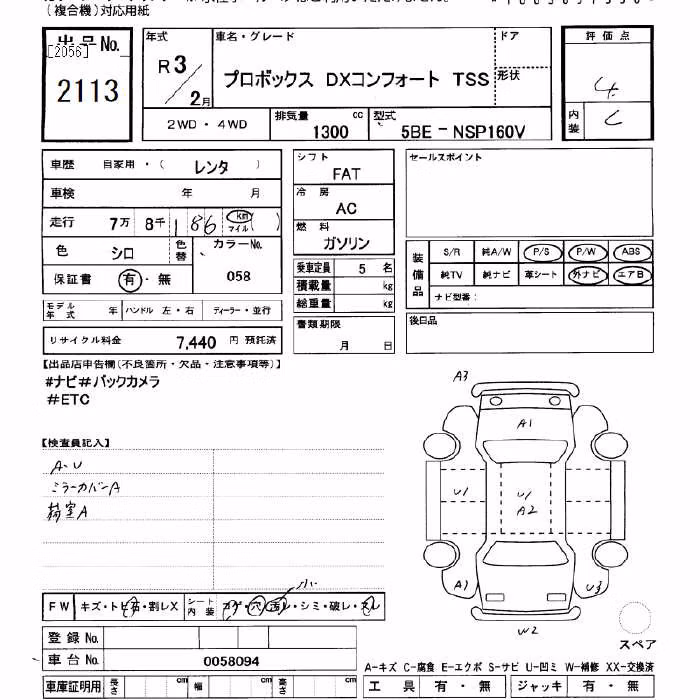 （複合機）対応用紙
出品No.
[2056]
2113
年式
R3/2月
車名・グレード
プロボックス DXコンフォート TSS
ドア
形状
評価点
4
内装
C
2WD・4WD
排気量
1300 cc
型式
5BE－NSP160V
車歴 自家用・（ レンタ ）
車検 年 月
走行 7万 8千 186 km マイル ( )
色 シロ
色替
カラーNo.
058
保証書 有・無
モデル年式 年 ハンドル 左・右 ディーラー・並行
リサイクル料金 7,440 円 預託済
シフト
FAT
冷房
AC
燃料
ガソリン
乗車定員 5 名
積載量 kg
総重量 kg
書類期限
月 日
セールスポイント
装備品
S/R 純A/W P/S P/W ABS
純TV 純ナビ 革シート 外ナビ エアB
ナビ型番：
後日品
【出品店申告欄(不良箇所・欠品・注意事項等)】
#ナビ#バックカメラ
#ETC
【検査員記入】
A-U
ミラーカバーA
荷室A
A3
A1
U1
U1
A2
A1
U3
W2
スペア
小
FW キズ・トビ石・割レX
シート内装 コゲ・穴・汚レ・シミ・破レ・スレ
登録No.
車台No. 0058094
車庫証明用 長さ cm 幅 cm 高さ cm
A-キズ C-腐食 E-エクボ S-サビ U-凹ミ W-補修 XX-交換済
工具 有・無 ジャッキ 有・無